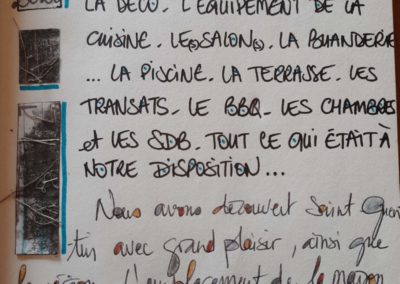 LA DÉCO. L'ÉQUIPEMENT DE LA
CUISINE. LE(S) SALON(S). LA BUANDERIE
... LA PISCINE. LA TERRASSE. LES
TRANSATS. LE BBQ. LES CHAMBRES
et LES SDB. TOUT CE QUI ÉTAIT À
NOTRE DISPOSITION...
Nous avons découvert Saint Quen
tin avec grand plaisir, ainsi que
la région. L'emplacement de la maison